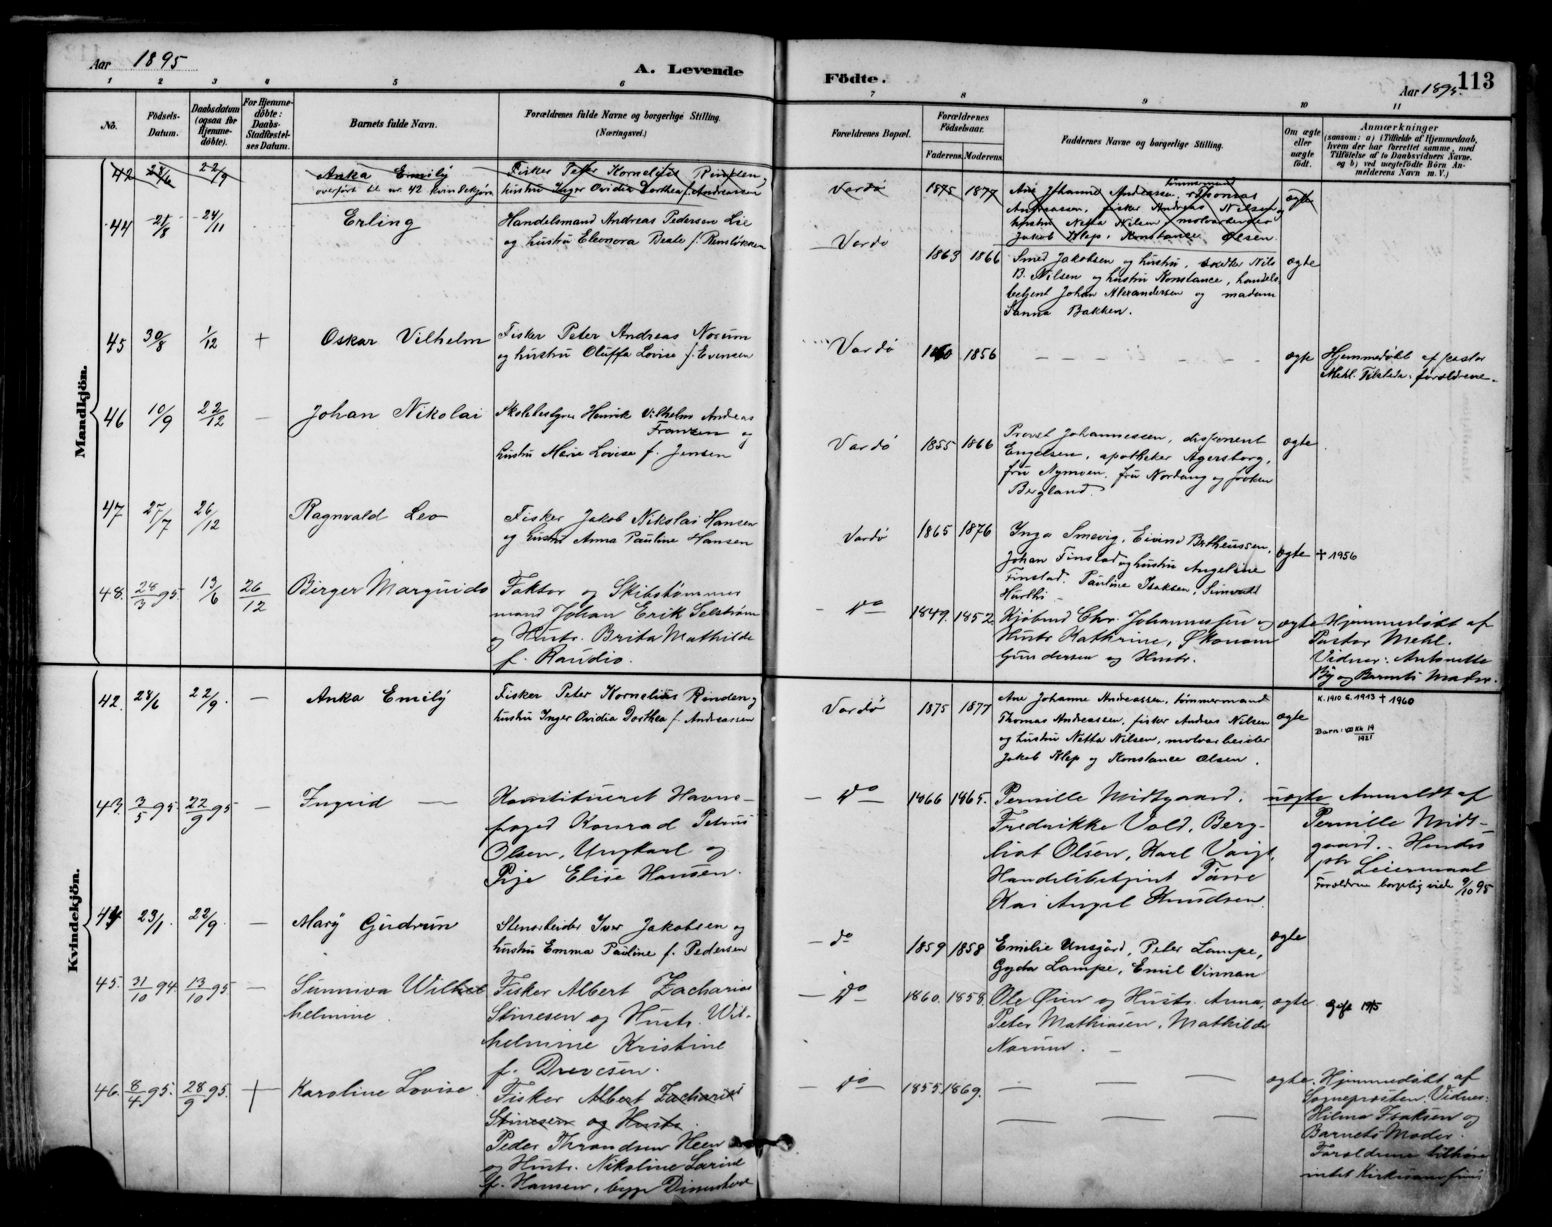 Aar 1895 A. Levende
Födte. Aar 1895. 113
1 2 3 4 5 6 7 8 9 10 11
No.
Födsels-
Datum.
Daabsdatum
(ogsaa for
Hjemme-
döbte).
For Hjemme-
döbte:
Daabs-
Stadfæstel-
ses Datum.
Barnets fulde Navn.
Forældrenes fulde Navne og borgerlige Stilling.
(Næringsvei.)
Forældrenes Bopæl.
Forældrenes
Födselsaar.
Faderens. Moderens.
Faddernes Navne og borgerlige Stilling.
Om ægte
eller
uægte
födt.
Anmærkninger
(saasom: a) i Tilfælde af Hjemmedaab,
hvem der har forrettet samme, med
Tilföielse af to Daabsvidners Navne,
og b) ved uægtefödte Börn An-
melderens Navn m. V.)
Mandkjön.
42 28/6 22/9 Anka Emily
overført til nr. 42 kvindekjøn
Fisker Peter Kornelius Rinden,
hustru Inger Ovidia Dorthea f. Andreassen
Vardø 1875 1877
Ane Johanne Andreassen, tømmermand Thomas
Andreassen, fisker Andreas Nilsen og
hustru Netta Nilsen, molvarbeider
Jakob Klep, Konstance Olsen.
ægte
44 21/8 24/11 Erling
Handelsmand Andreas Pedersen Lie
og hustru Eleonora Beate f.
Vardø 1863 1866
Smed Jakobsen og hustru, Nils
B. Nilsen og hustru Konstance, handels-
betjent Johan Alexandersen og madam
Sanna Bakken.
ægte
45 30/8 1/12 + Oskar Vilhelm
Fisker Peter Andreas Norum
og hustru Oluffa Lovise f. Evensen
Vardø 1860 1856 ægte
Hjemmedøbt af pastor
Mehl. forældrene.
46 10/9 22/12 — Johan Nikolai
Skolebestyrer Henrik Vilhelm Andreas
Franzen og
hustru Marie Lovise f. Jensen
Vardø 1855 1866
Provst Johannessen, disponent
Engelsen, apotheker Agersborg,
fru Nymoen, fru Nordang og frøken
Bergland.
ægte
47 27/7 26/12 Ragnvald Leo
Fisker Jakob Nikolai Hansen
og hustru Anna Pauline Hansen
Vardø 1865 1876
Inga Smevig, Eivind Bertheussen,
Johan Finstad og hustru Angelsine
Finstad. Pauline Isaksen,
ægte + 1956
48. 28/3 95 13/6 26/12 Birger Marquido
Faktor og Skibstømmer
mand Johan Erik Selstrøm
og Hustr. Brita Mathilde
f. Raudio.
— do 1849. 1852.
Kjøbmd Chr. Johannessen og
Hustr Kathrine, Økonom
Gundersen og Hustr.
ægte
Hjemmedøbt af
Pastor Mehl.
Vidner: Antonette
By og Barnets Moder.
Kvindekjön.
42. 28/6 22/9. — Anka Emily
Fisker Peter Kornelius Rinden og
hustru Inger Ovidia Dorthea f. Andreassen
Vardø 1875 1877
Ane Johanne Andreassen, tømmermand
Thomas Andreassen, fisker Andreas Nilsen
og hustru Netta Nilsen, molvarbeider
Jakob Klep og Konstance Olsen.
ægte
K. 1910 G. 1913 + 1960
Barn: 14/1921
43. 3/5 95. 22/9 95 — Ingrid —
Konstitueret Havne-
foged Konrad Petrus
Olsen, Ungkarl og
Pige Elise Hansen.
— do — 1866 1865.
Pernille Midtgaard,
Fredrikke Vold, Berg-
liot Olsen, Karl Voigt,
Handelsbetjent
Kai Angel Knudsen.
uægte
Anmeldt af
Pernille Midt-
gaard. Hendes
Leiermaal
Forældrene borgelig viede 9/10 95
44 23/1. 22/9. — Mary Gudrun
Stenarbeider Iver Jakobsen og
hustru Emma Pauline f. Pedersen
— do 1859 1858
Emilie Unsgård, Peter Lampe,
Gyda Lampe, Emil Vinnan
ægte
45. 31/10 94 13/10 95 — Sunniva Wil
helmine.
Fisker Albert Zacharias
Simesen og Hustr. Wil-
helmine Kristine
f. Drevesen.
— do — 1860. 1858.
Ole Øien og Hustr. Anna,
Peter Mathiasen, Mathilde
Norum. —
ægte. Gift 1915
46. 8/4 95. 28/9 95. + Karoline Lovise.
Fisker Albert Zacharias
Simesen og Hustr.
Peder Thrandsen Heen
og Hustr. Nikoline Sarine
f. Hansen,
— do — 1855. 1869.
ægte.
Hjemmedøbt af
Sogneprosten. Vidner:
Hilma Isaksen og
Barnets Moder.
Forældrene tilhører
intet Kirkesamfund